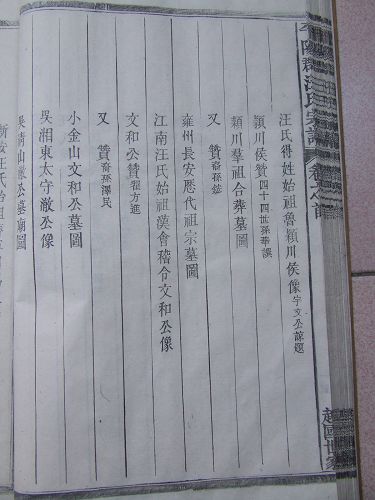 平陽郡汪氏宗譜 卷之首
越國世家
汪氏得姓始祖魯潁川侯像 宇文公諒題
潁川侯贊 四十四世孫華譔
潁川羣祖合葬墓圖
又 贊 裔孫鋕
雍州長安歷代祖宗墓圖
江南汪氏始祖漢會稽令文和公像
文和公贊 翟方進
又 贊 裔孫澤民
小金山文和公墓圖
吳湘東太守澈公像
吳清山澈公墓廟圖
新安汪氏始祖